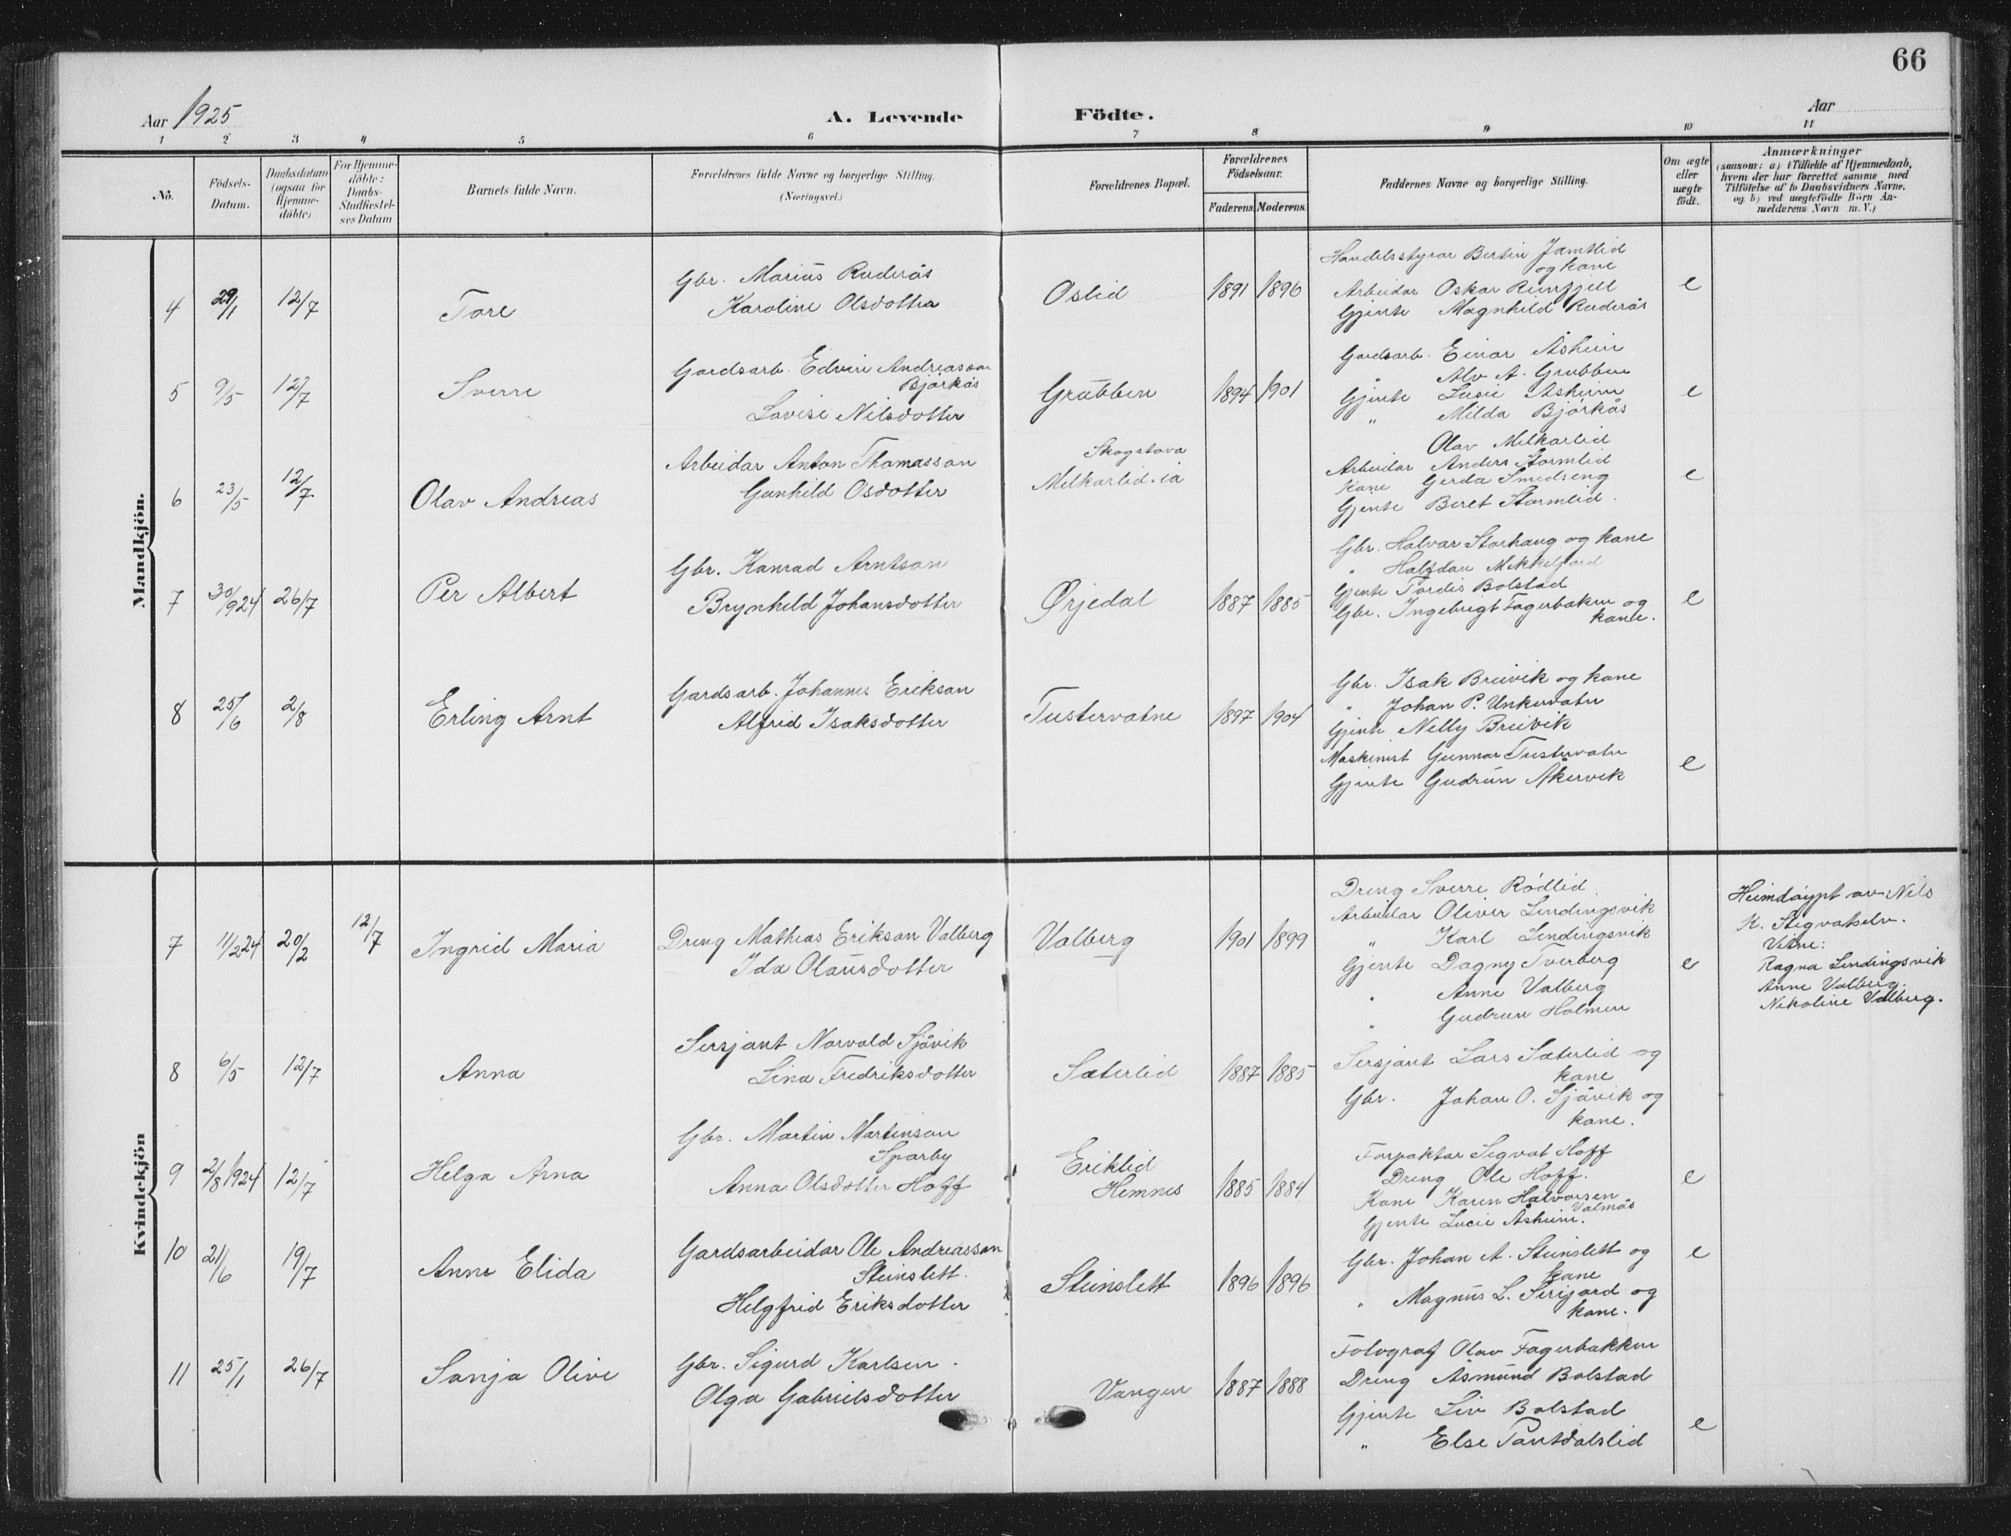 66
Aar 1925
A. Levende Födte.
Aar
1 2 3 4 5 6 7 8 9 10 11
No.
Födsels-
Datum.
Daabsdatum
(ogsaa for
Hjemme-
döbte)
For Hjemme-
döbte:
Daabs-
Stadfæstel-
ses Datum
Barnets fulde Navn.
Forældrenes fulde Navne og borgerlige Stilling.
(Næringsvei.)
Forældrenes Bopæl.
Forældrenes
Födselsaar.
Faderens. Moderens.
Faddernes Navne og borgerlige Stilling.
Om ægte
eller
uægte
födt.
Anmærkninger
(saasom: a) i Tilfælde af Hjemmedaab,
hvem der har forrettet samme med
Tilföielse af to Daabsvidners Navne.
og b) ved uægtefödte Börn An-
melderens Navn m. V.)
Mandkjön.
4 29/1 12/7 Tore
Gbr. Marius Ruderås
Karoline Olsdotter
Oslid 1891 1896
Handelsstyrar Bertin Jamtlid
og kane
Arbeidar Oskar
Gjente Magnhild Ruderås
e
5 9/5 12/7 Sverre
Gardsarb. Edvin Andreasson
Bjørkås
Lovise Nilsdotter
Grubben 1894 1901
Gardsarb. Einar Åsheim
" Alv A. Grubben
Gjente Lusie Åsheim
" Milda Bjørkås
e
6 23/5 12/7 Olav Andreas
Arbeidar Anton Thomasson
Gunhild Osdotter
Skogstova
Milkarlid-ia
Olav Milkarlid
Arbeidar Anders Stormlid
Kane Gerda Smedseng
Gjente Beret Stormlid.
e
7 30/1 1924 26/7 Per Albert
Gbr. Konrad Arntson
Brynhild Johansdotter
Ørjedal 1887 1885
Gbr. Halvar Storhaug og kane
" Halfdan Mikkeljord
Gjente Tordis Bolstad
Gbr. Ingebrigt Fagerbakken og
kane.
e
8 25/6 2/8 Erling Arnt
Gardsarb. Johannes Erikson
Alfrid Isaksdotter
Tustervatne 1897 1904
Gbr. Isak Breivik og kane
" Johan P. Unkervatn
Gjente Nelly Breivik
Maskinist Gunnar Tustervatn
Gjente Gudrun Åkervik
e
Kvindekjön
7 11/2 24 20/2 12/7 Ingrid Maria
Dreng Mathias Erikson Valberg
Ida Olausdotter
Valberg 1901 1899
Dreng Sverre Rødlid.
Arbeidar Oliver Lendingsvik
" Karl Lendingsvik
Gjente Dagny Tverberg
" Anne Valberg
" Gudrun Holmen
e
Heimdøypt av Nils
K. Stegvatselv.
Vitne:
Ragna Lendingsvik
Anne Valberg.
Nikoline Valberg.
8 6/5 12/7 Anna
Sersjant Norvald Sjåvik
Lina Fredriksdotter
Sæterlid 1887 1885
Sersjant Lars Sæterlid og
kane
Gbr. Johan O. Sjåvik og
kane.
9 2/8 1924 12/7 Helga Arna
Gbr. Martin Martinson
Sparby
Anna Olsdotter Hoff
Eriklid
Hemnes 1885 1884
Forpaktar Sigvat Hoff
Dreng Ole Hoff.
Kane Karen Halvorsen
Valmås
Gjente Lucie Åsheim.
e
10 21/6 19/7 Anne Elida
Gardsarbeidar Ole Andreasson
Steinslett.
Helgfrid Eriksdotter
Steinslett 1896 1896
Gbr. Johan A. Steinslett og
kane
" Magnus L. Serijord og
kane.
e
11 25/1 26/7 Sonja Olive
Gbr. Sigurd Karlsen.
Olga Gabrielsdotter
Vangen 1887 1888
Fotograf Olav Fagerbakken
Dreng Åsmund Bolstad
Gjente Liv Bolstad
" Else Tantdalslid
e